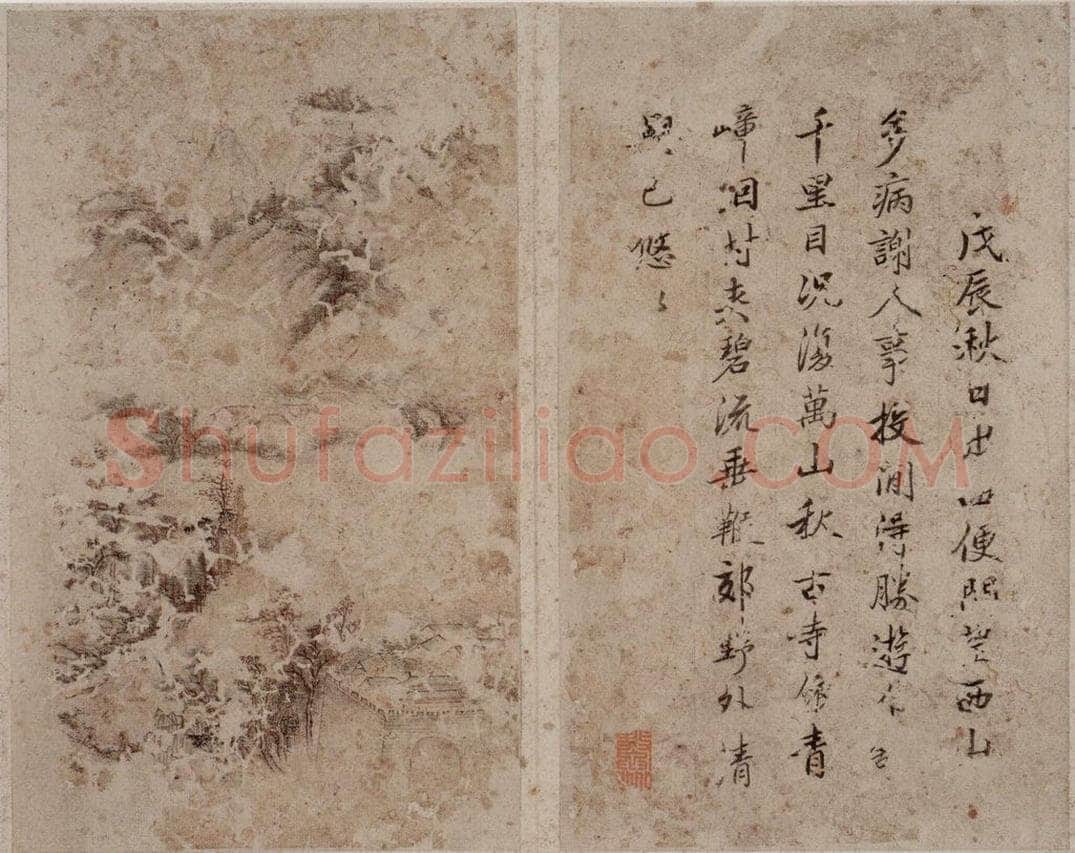 戊辰湫日出便熙登西山
多病謝人事投閒得勝遊
千里目況復萬山秋古寺依青
嶂洄村夾碧流垂鞭郊野外清
興已悠〻
Shufaziliao.COM